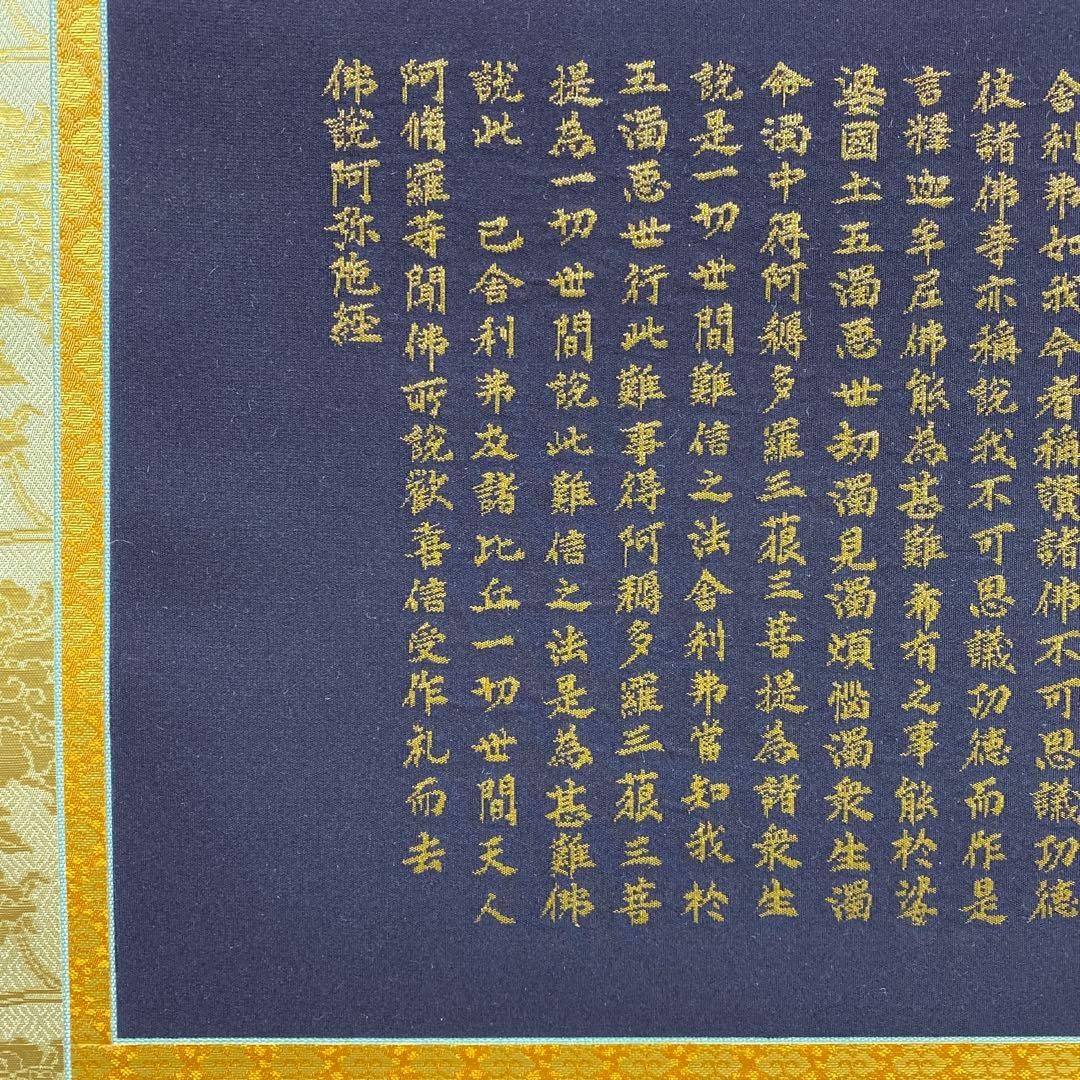 舍利弗如我今者稱讚諸佛不可思議功德
彼諸佛等亦稱說我不可思議功德而作是
言釋迦牟尼佛能為甚難希有之事能於娑
婆國土五濁惡世劫濁見濁煩惱濁衆生濁
命濁中得阿耨多羅三藐三菩提為諸衆生
說是一切世間難信之法舍利弗當知我於
五濁惡世行此難事得阿耨多羅三藐三菩
提為一切世間說此難信之法是為甚難佛
說此 已舍利弗及諸比丘一切世間天人
阿脩羅等聞佛所說歡喜信受作礼而去
佛說阿弥陁經